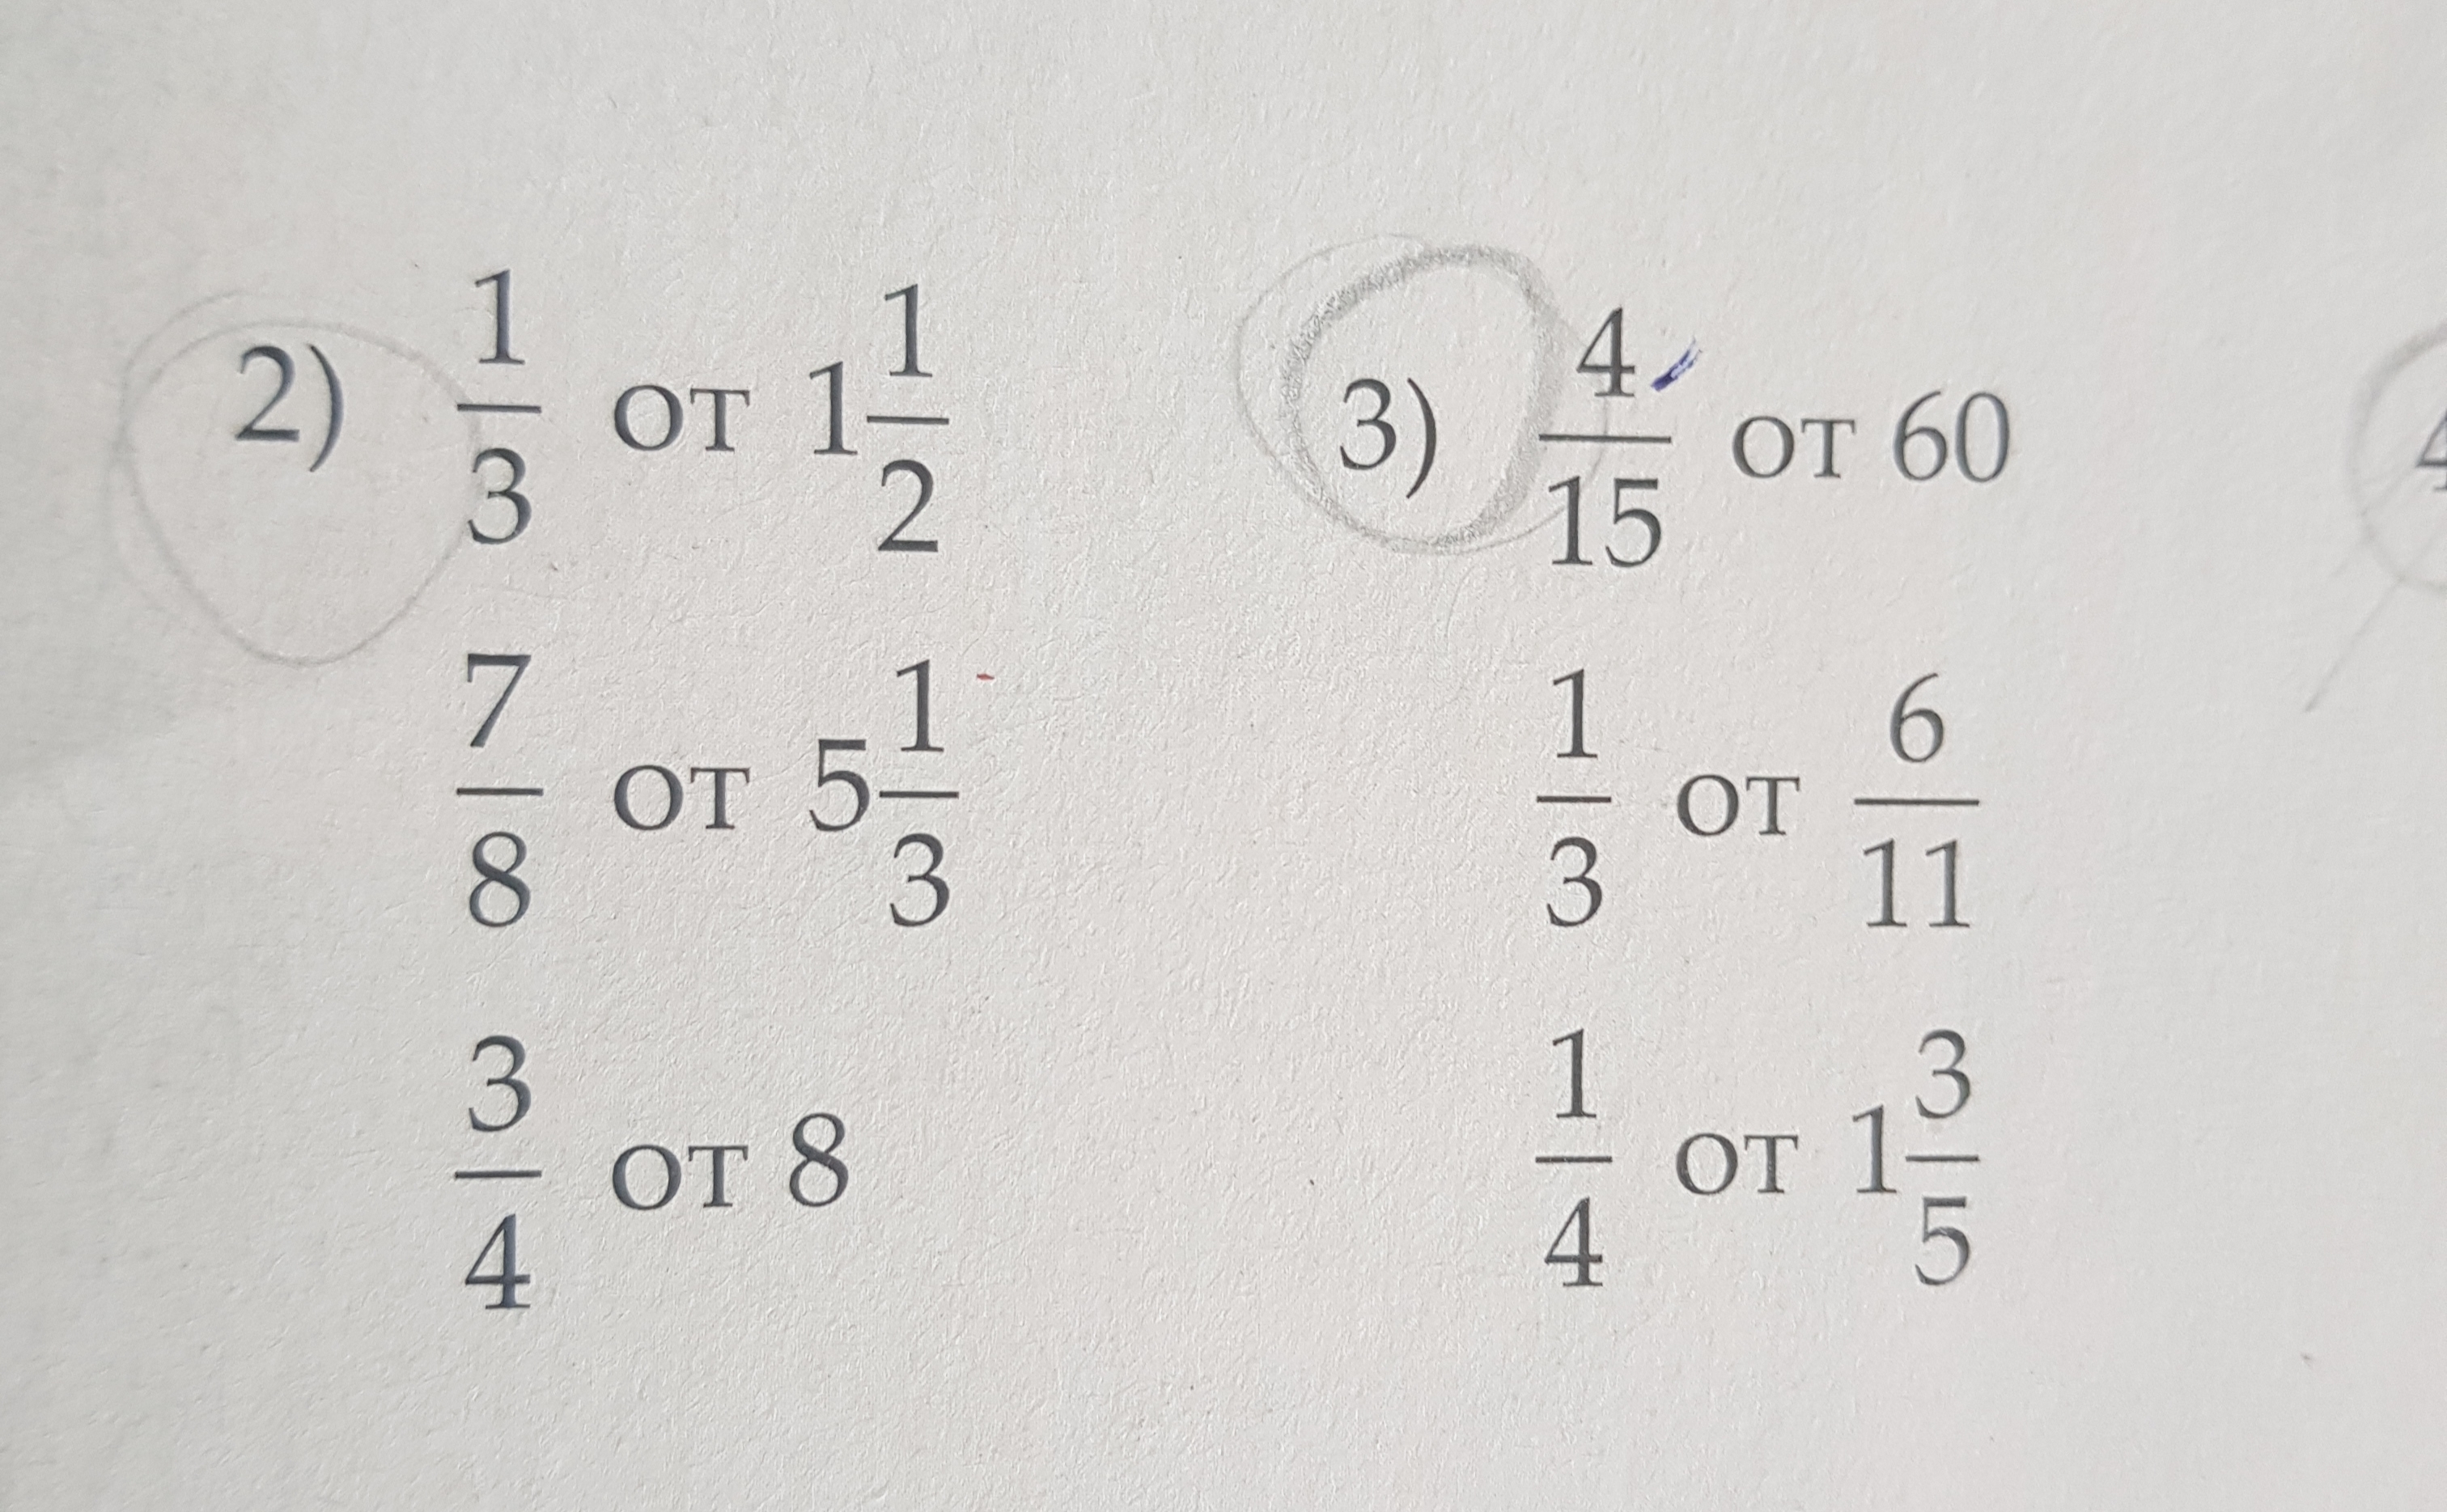 2) 1/3 от 1 1/2
7/8 от 5 1/3
3/4 от 8
3) 4/15 от 60
1/3 от 6/11
1/4 от 1 3/5